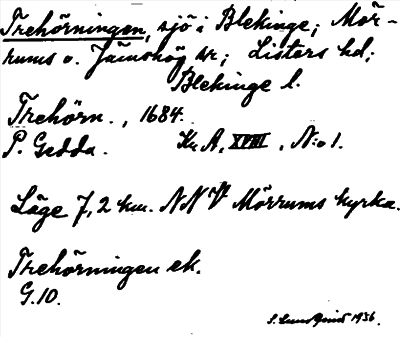 Trehörningen, sjö i Blekinge; Mör-
rums o. Jämshög sr; Listers hd;
Blekinge l.
Trehörn., 1684.
P. Gedda. Kr. A, XVIII, N:o 1.
Läge 7,2 km. NNV Mörrums kyrka.
Trehörningen ek.
G.10.
S. Lundqvist 1936.